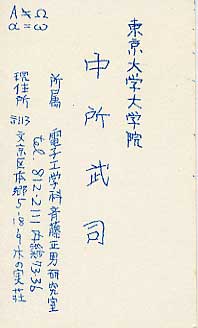 東京大学大学院
中所武司
所属 電子工学科斉藤正男研究室
tel. 812-2111 内線7336
現住所 〒113 文京区本郷5-18-9 木の実荘
Ω ω
A α